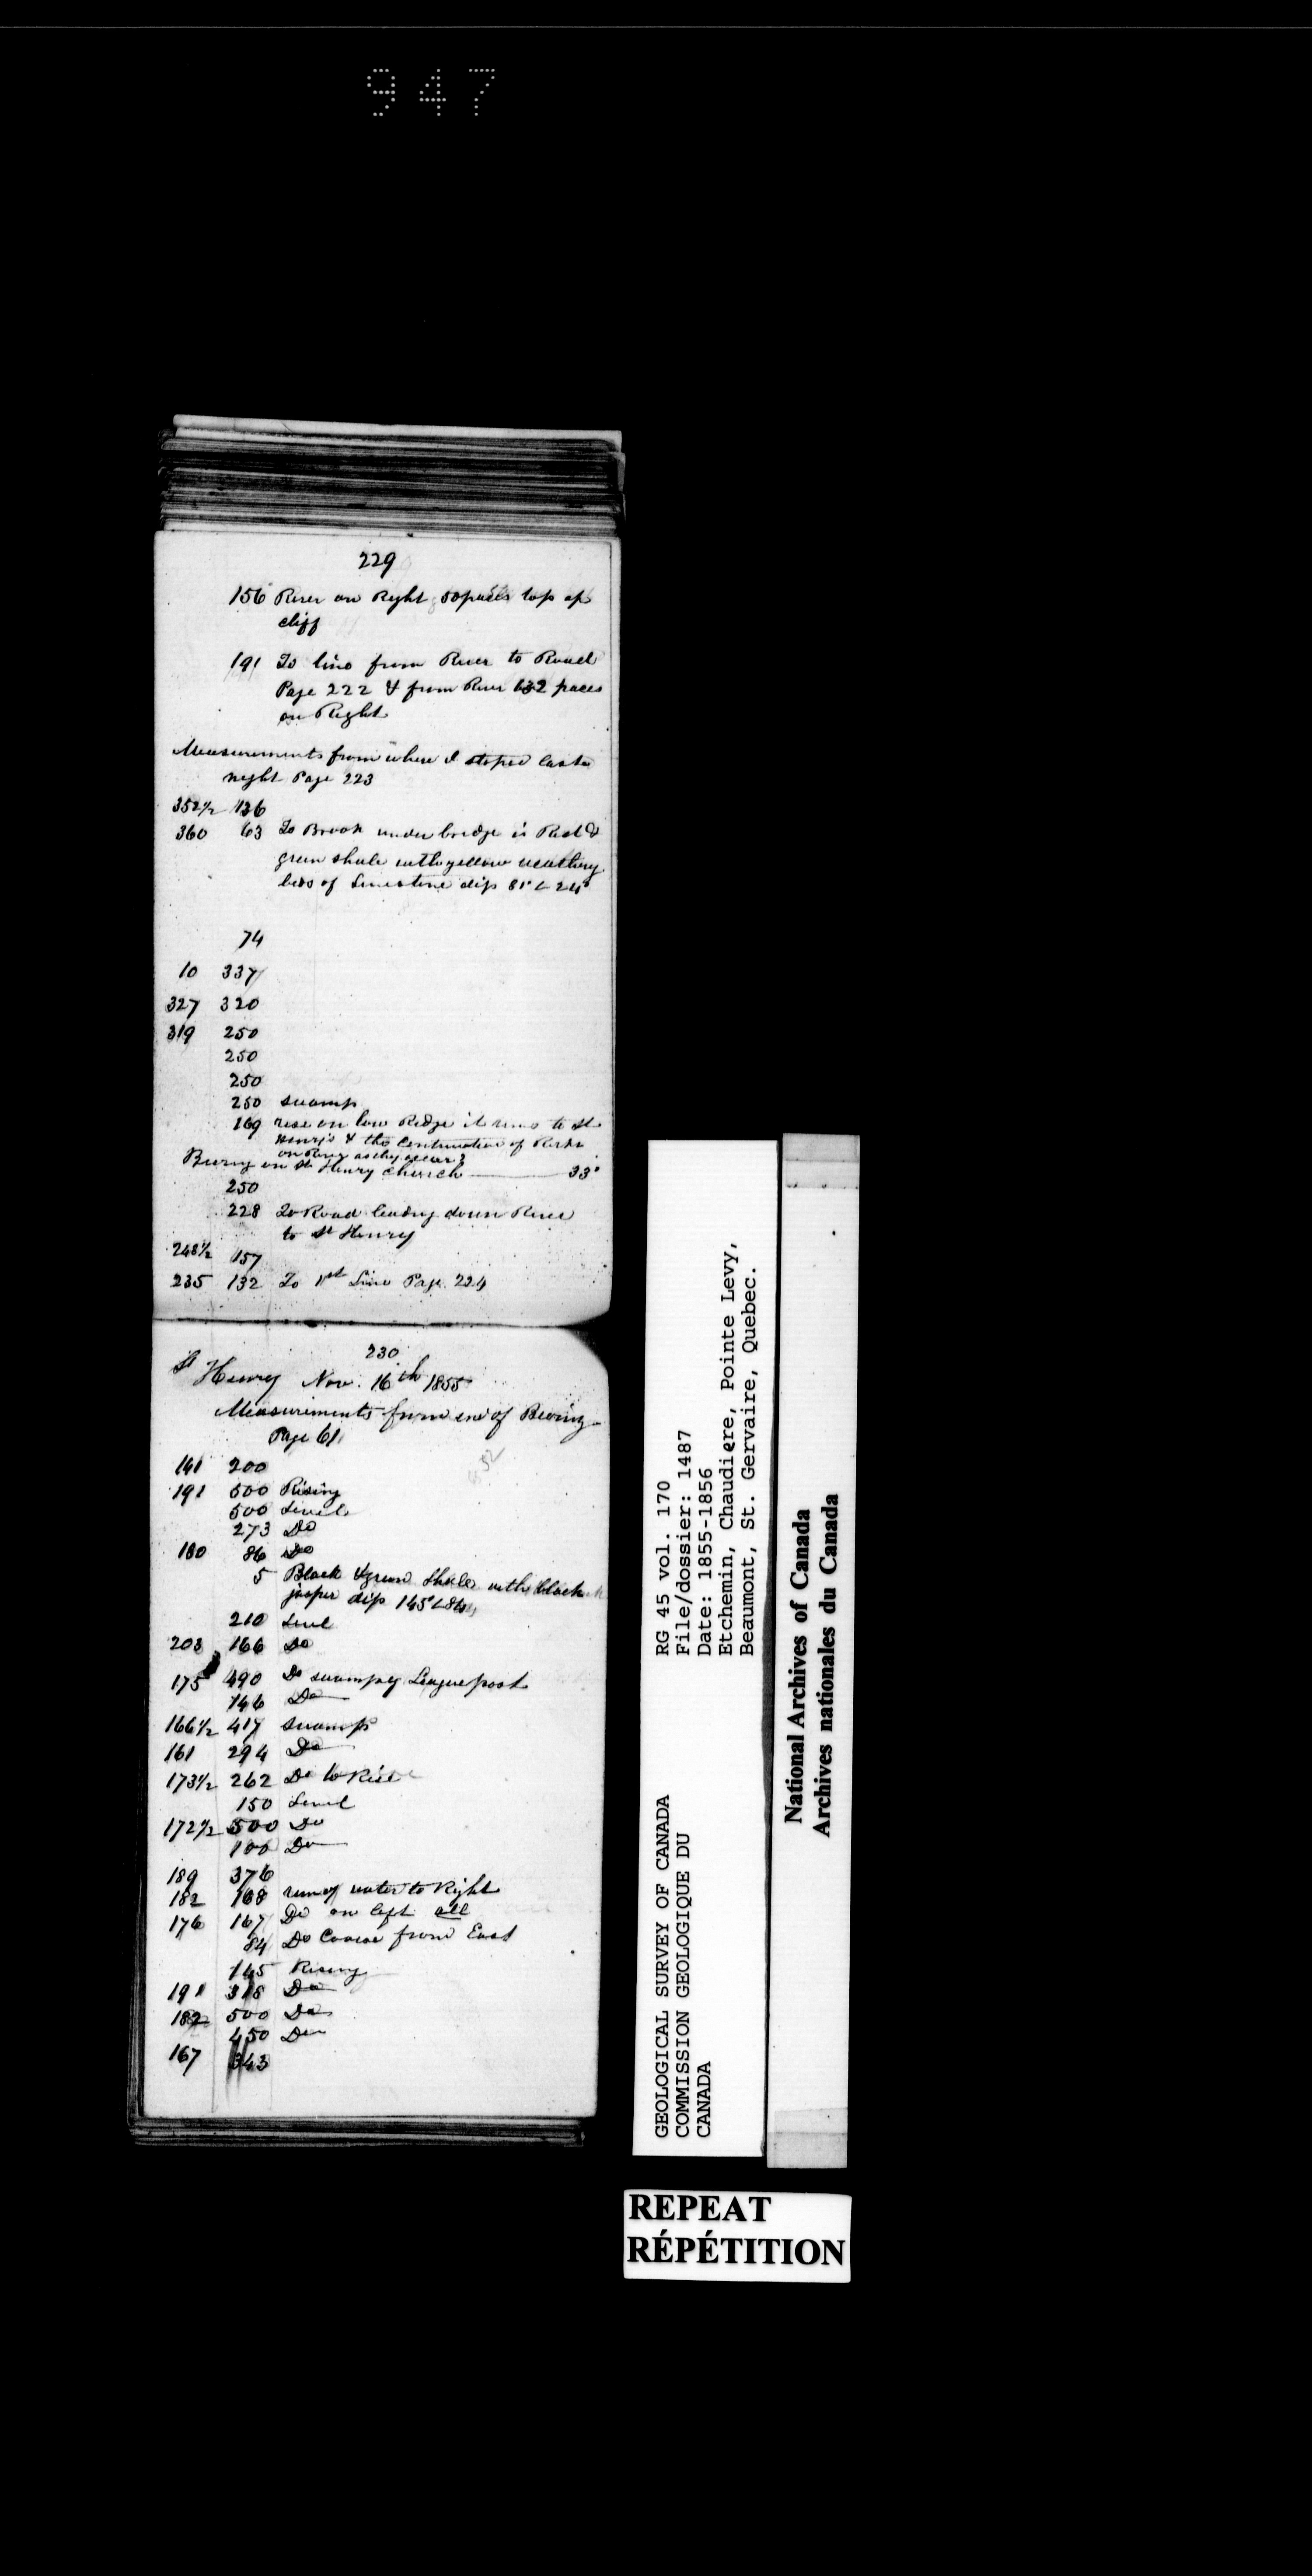 947
229
156 River on Right 50 paces top of
cliff
191 To line from River to Road
Page 222 & from River 132 paces
on Right
Measurements from where I stoped last
night Page 223
352 1/2 136
360 63 To Brook under bridge is Red &
green shale with yellow weathering
beds of Limestone dip 81° L 24°
74
10 337
327 320
319 250
250
250
250 swamp
169 rise on low Ridge it runs to St
Henry's & the Continuation of Rocks
on River as they occur
Bearing on St Henry Church 33°
250
228 To Road leading down River
to St Henry
248 1/2 157
235 132 To 1st Line Page 224
230
St Henry Nov. 16th 1855
Measurements from end of Bearing
Page 61
141 200
191 500 Rising
500 Level
273 Do
180 86 Do
5 Black & green Shale with black
jasper dip 145° L 84
210 Level
203 166 Do
175 490 Do swampy League post
146 Do
166 1/2 417 swamp
161 294 Do
173 1/2 262 Do to Rise
150 Level
172 1/2 500 Do
100 Do
189 376
182 168 run of water to Right
176 167 Do on left all
84 Do Course from East
145 Rising
191 318 Do
182 500 Do
450 Do
167 343
RG 45 vol. 170
File/dossier: 1487
Date: 1855-1856
Etchemin, Chaudiere, Pointe Levy,
Beaumont, St. Gervaire, Quebec.
GEOLOGICAL SURVEY OF CANADA
COMMISSION GEOLOGIQUE DU
CANADA
National Archives of Canada
Archives nationales du Canada
REPEAT
RÉPÉTITION